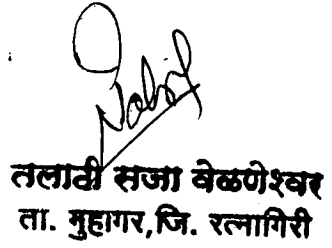 तलाठी सजा वेळणेश्वर
ता. गुहागर,जि. रत्नागिरी